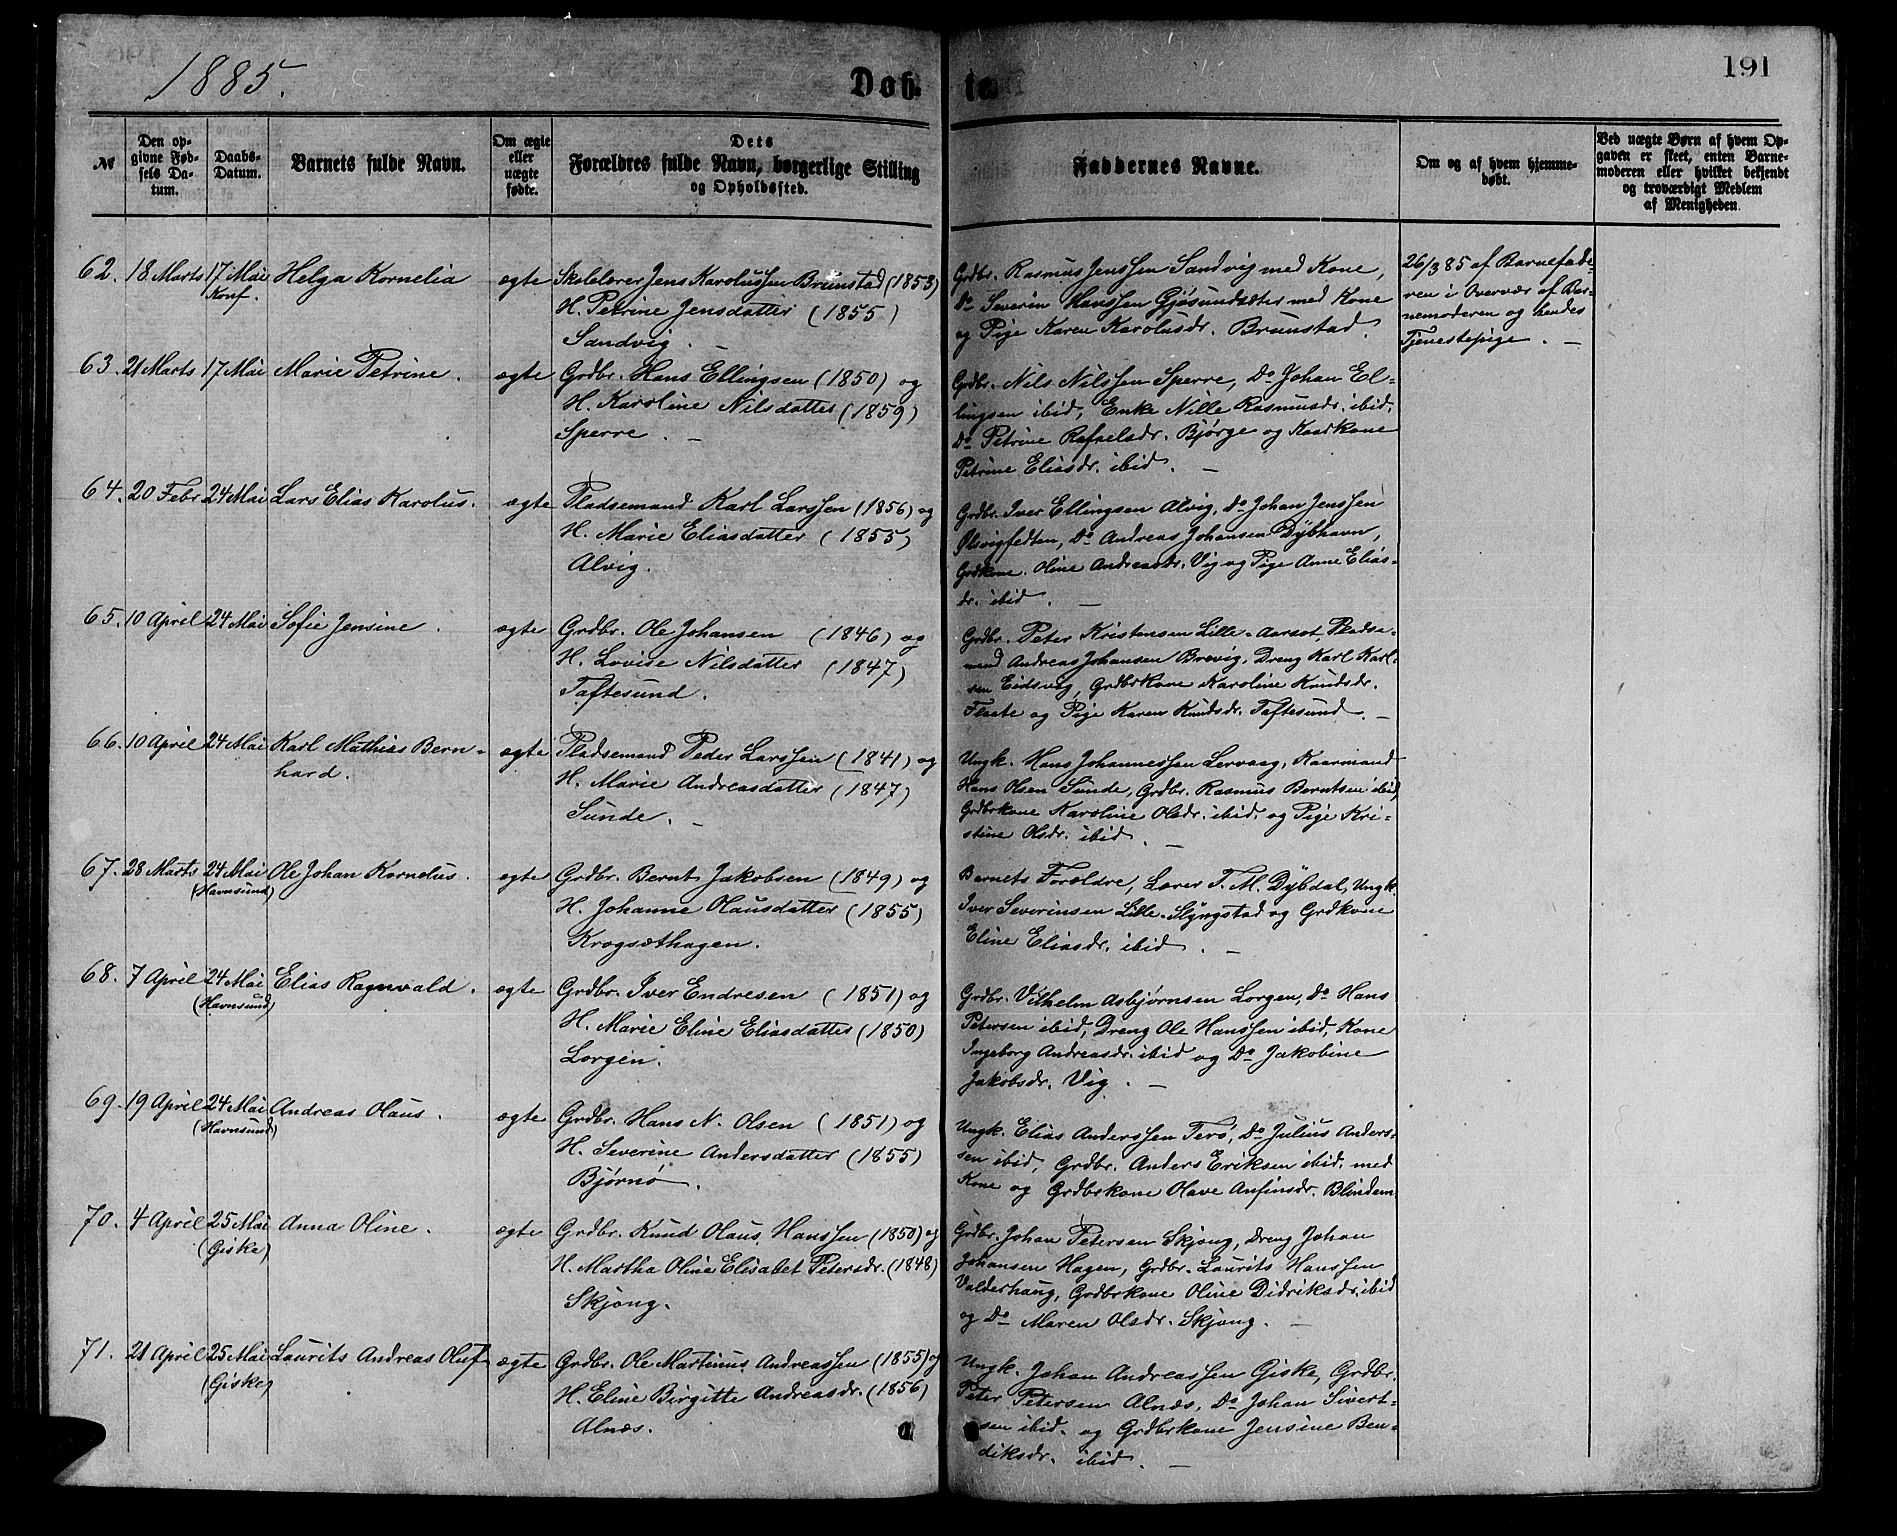 1885.
Døb-
te.
191
№
Den op-
givne Fød-
sels Da-
tum.
Daabs-
Datum.
Barnets fulde Navn.
Om ægte
eller
uægte
fødte.
Dets
Forældres fulde Navn, borgerlige Stilling
og Opholdssted.
Faddernes Navne.
Om og af hvem hjemme-
døbt.
Ved uægte Børn af hvem Op-
gaven er skeet, enten Barne-
moderen eller hvilket bekjendt
og troværdigt Medlem
af Menigheden.
62. 18 Marts 17 Mai Helga Kornelia ægte Skolelærer Jens Karolussen Brunstad (1853)
Konf.
H. Petrine Jensdatter (1855)
Sandvig. —
Grdbr. Rasmus Jenssen Sandvig med Kone,
Do Severin Hanssen Gjøsundsæter med Kone
og Pige Karen Karolusdr. Brunstad.
26/3 85 af Barnefade-
ren i Overvær af Bar-
nemoderen og hendes
Tjenestepige. —
63. 21 Marts 17 Mai Marie Petrine. ægte Grdbr. Hans Ellingsen (1850) og
H. Karoline Nilsdatter (1859)
Sperre. —
Grdbr. Nils Nilssen Sperre, Do Johan El-
lingsen ibid, Enke Nille Rasmusdr. ibid,
Do Petrine Rafaelsdr. Bjørge og Kaarkone
Petrine Eliasdr. ibid. —
64. 20 Febr 24 Mai Lars Elias Karolus. ægte Pladsemand Karl Larssen (1856) og
H. Marie Eliasdatter (1855)
Alvig.
Grdbr. Iver Ellingsen Alvig, Do Johan Jenssen
Olsvigfedten, Do Andreas Johansen Dybhavn,
Grdkone. Oline Andreasdr. Vig og Pige Anne Elias-
dr. ibid. —
65. 10 April 24 Mai Sofie Jensine. ægte Grdbr. Ole Johansen (1846) og
H. Lovise Nilsdatter (1847)
Taftesund.
Grdbr. Peter Kristensen Lille-Aarsæt, Pladse-
mand Andreas Johansen Brevig, Dreng Karl Karl-
sen Eidsvig, Grdbrkone Karoline Knudsdr.
Flaate og Pige Karen Knudsdr. Taftesund. —
66. 10 April 24 Mai Karl Mathias Bern- ægte Pladsemand Peder Larssen (1841) og
hard.
H. Marie Andreasdatter (1847)
Sunde. —
Ungk. Hans Johannessen Lervaag, Kaarmand
Hans Olsen Sunde, Grdbr. Rasmus Berntsen ibid,
Grdbrkone Karoline Olsdr. ibid. og Pige Kri-
stine Olsdr. ibid. —
67. 28 Marts 24 Mai Ole Johan Kornelus. ægte Grdbr. Bernt Jakobsen (1849) og
(Havnsund)
H. Johanne Olausdatter (1855)
Krogsæthagen.
Barnets Forældre, Lærer T. M. Dybdal, Ungk.
Iver Severinsen Lille-Slyngstad og Grdkone
Eline Eliasdr. ibid. —
68. 7 April 24 Mai Elias Ragnvald. ægte Grdbr. Iver Endresen (1851) og
(Havnsund)
H. Marie Eline Eliasdatter (1850)
Lorgen.
Grdbr. Vilhelm Asbjørnsen Lorgen, Do Hans
Petersen ibid, Dreng Ole Hanssen ibid, Kone
Ingeborg Andreasdr. ibid og Do Jakobine
Jakobsdr. Vig. —
69. 19 April 24 Mai Andreas Olaus. ægte Grdbr. Hans N. Olsen (1851) og
(Havnsund)
H. Severine Andersdatter (1855)
Bjørnø.
Ungk. Elias Anderssen Terø, Do Julius Anders-
sen ibid, Grdbr. Anders Eriksen ibid. med
Kone og Grdbrkone Olave Anfinsdr. Blindem
70. 4 April 25 Mai Anna Oline. ægte Grdbr. Knud Olaus Hanssen (1850) og
(Giske)
H. Martha Oline Elisabet Petersdr. (1848)
Skjong.
Grdbr. Johan Petersen Skjong, Dreng Johan
Johansen Hagen, Grdbr. Laurits Hanssen
Valderhaug, Grdbrkone Oline Didriksdr. ibid
og Do Maren Olsdr. Skjong. —
71. 21 April 25 Mai Laurits Andreas Oluf ægte Grdbr. Ole Martinus Andreassen (1855) og
(Giske)
H. Eline Birgitte Andreasdr. (1856)
Alnæs.
Ungk. Johan Andreassen Giske, Grdbr.
Peter Petersen Alnæs, Do Johan Sivert-
sen ibid. og Grdbrkone Jensine Ben-
diksdr. ibid. —